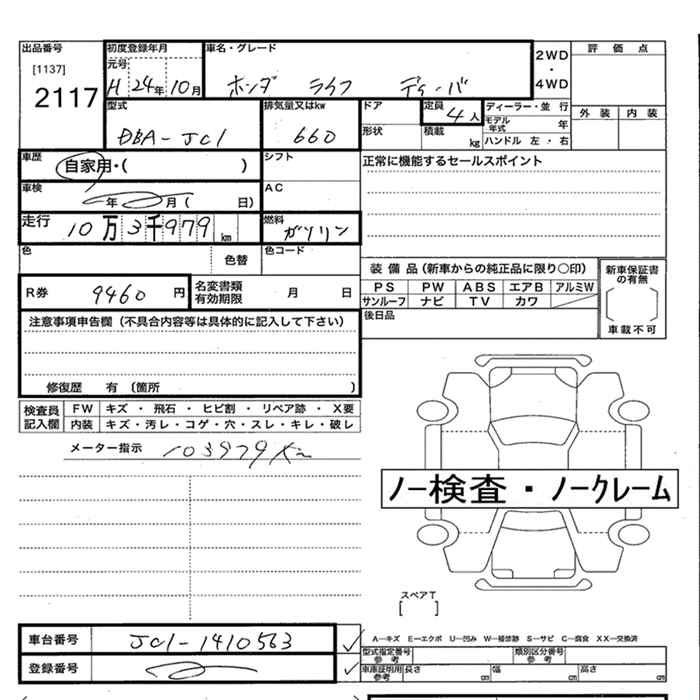 出品番号 初度登録年月 車名・グレード 2WD・4WD 評価点
[1137] 元号
2117 H 24年 10月 ホンダ ライフ ディーバ
型式 排気量又はkw ドア 定員 4人 ディーラー・並 行 外装 内装
DBA-JC1 660 形状 積載 kg モデル年式 年
ハンドル 左・右
車歴 自家用・( ) シフト 正常に機能するセールスポイント
車検 年 月( 日) AC
走行 10万3千979km 燃料 ガソリン
色 色替 色コード
装備品(新車からの純正品に限り○印) 新車保証書の有無
R券 9460円 名変書類有効期限 月 日 PS PW ABS エアB アルミW
サンルーフ ナビ TV カワ 車載不可
注意事項申告欄(不具合内容等は具体的に記入して下さい) 後日品
修復歴 有 (箇所 )
検査員記入欄 FW キズ・飛石・ヒビ割・リペア跡・X要
内装 キズ・汚レ・コゲ・穴・スレ・キレ・破レ
メーター指示 103979km
ノー検査・ノークレーム
スペアT
[ ]
車台番号 JC1-1410563 A―キズ E―エクボ U―凹み W―補修跡 S―サビ C―腐食 XX―交換済
型式指定番号参考 類別区分番号参考
登録番号 車庫証明用参考 長さ cm 幅 cm 高さ cm